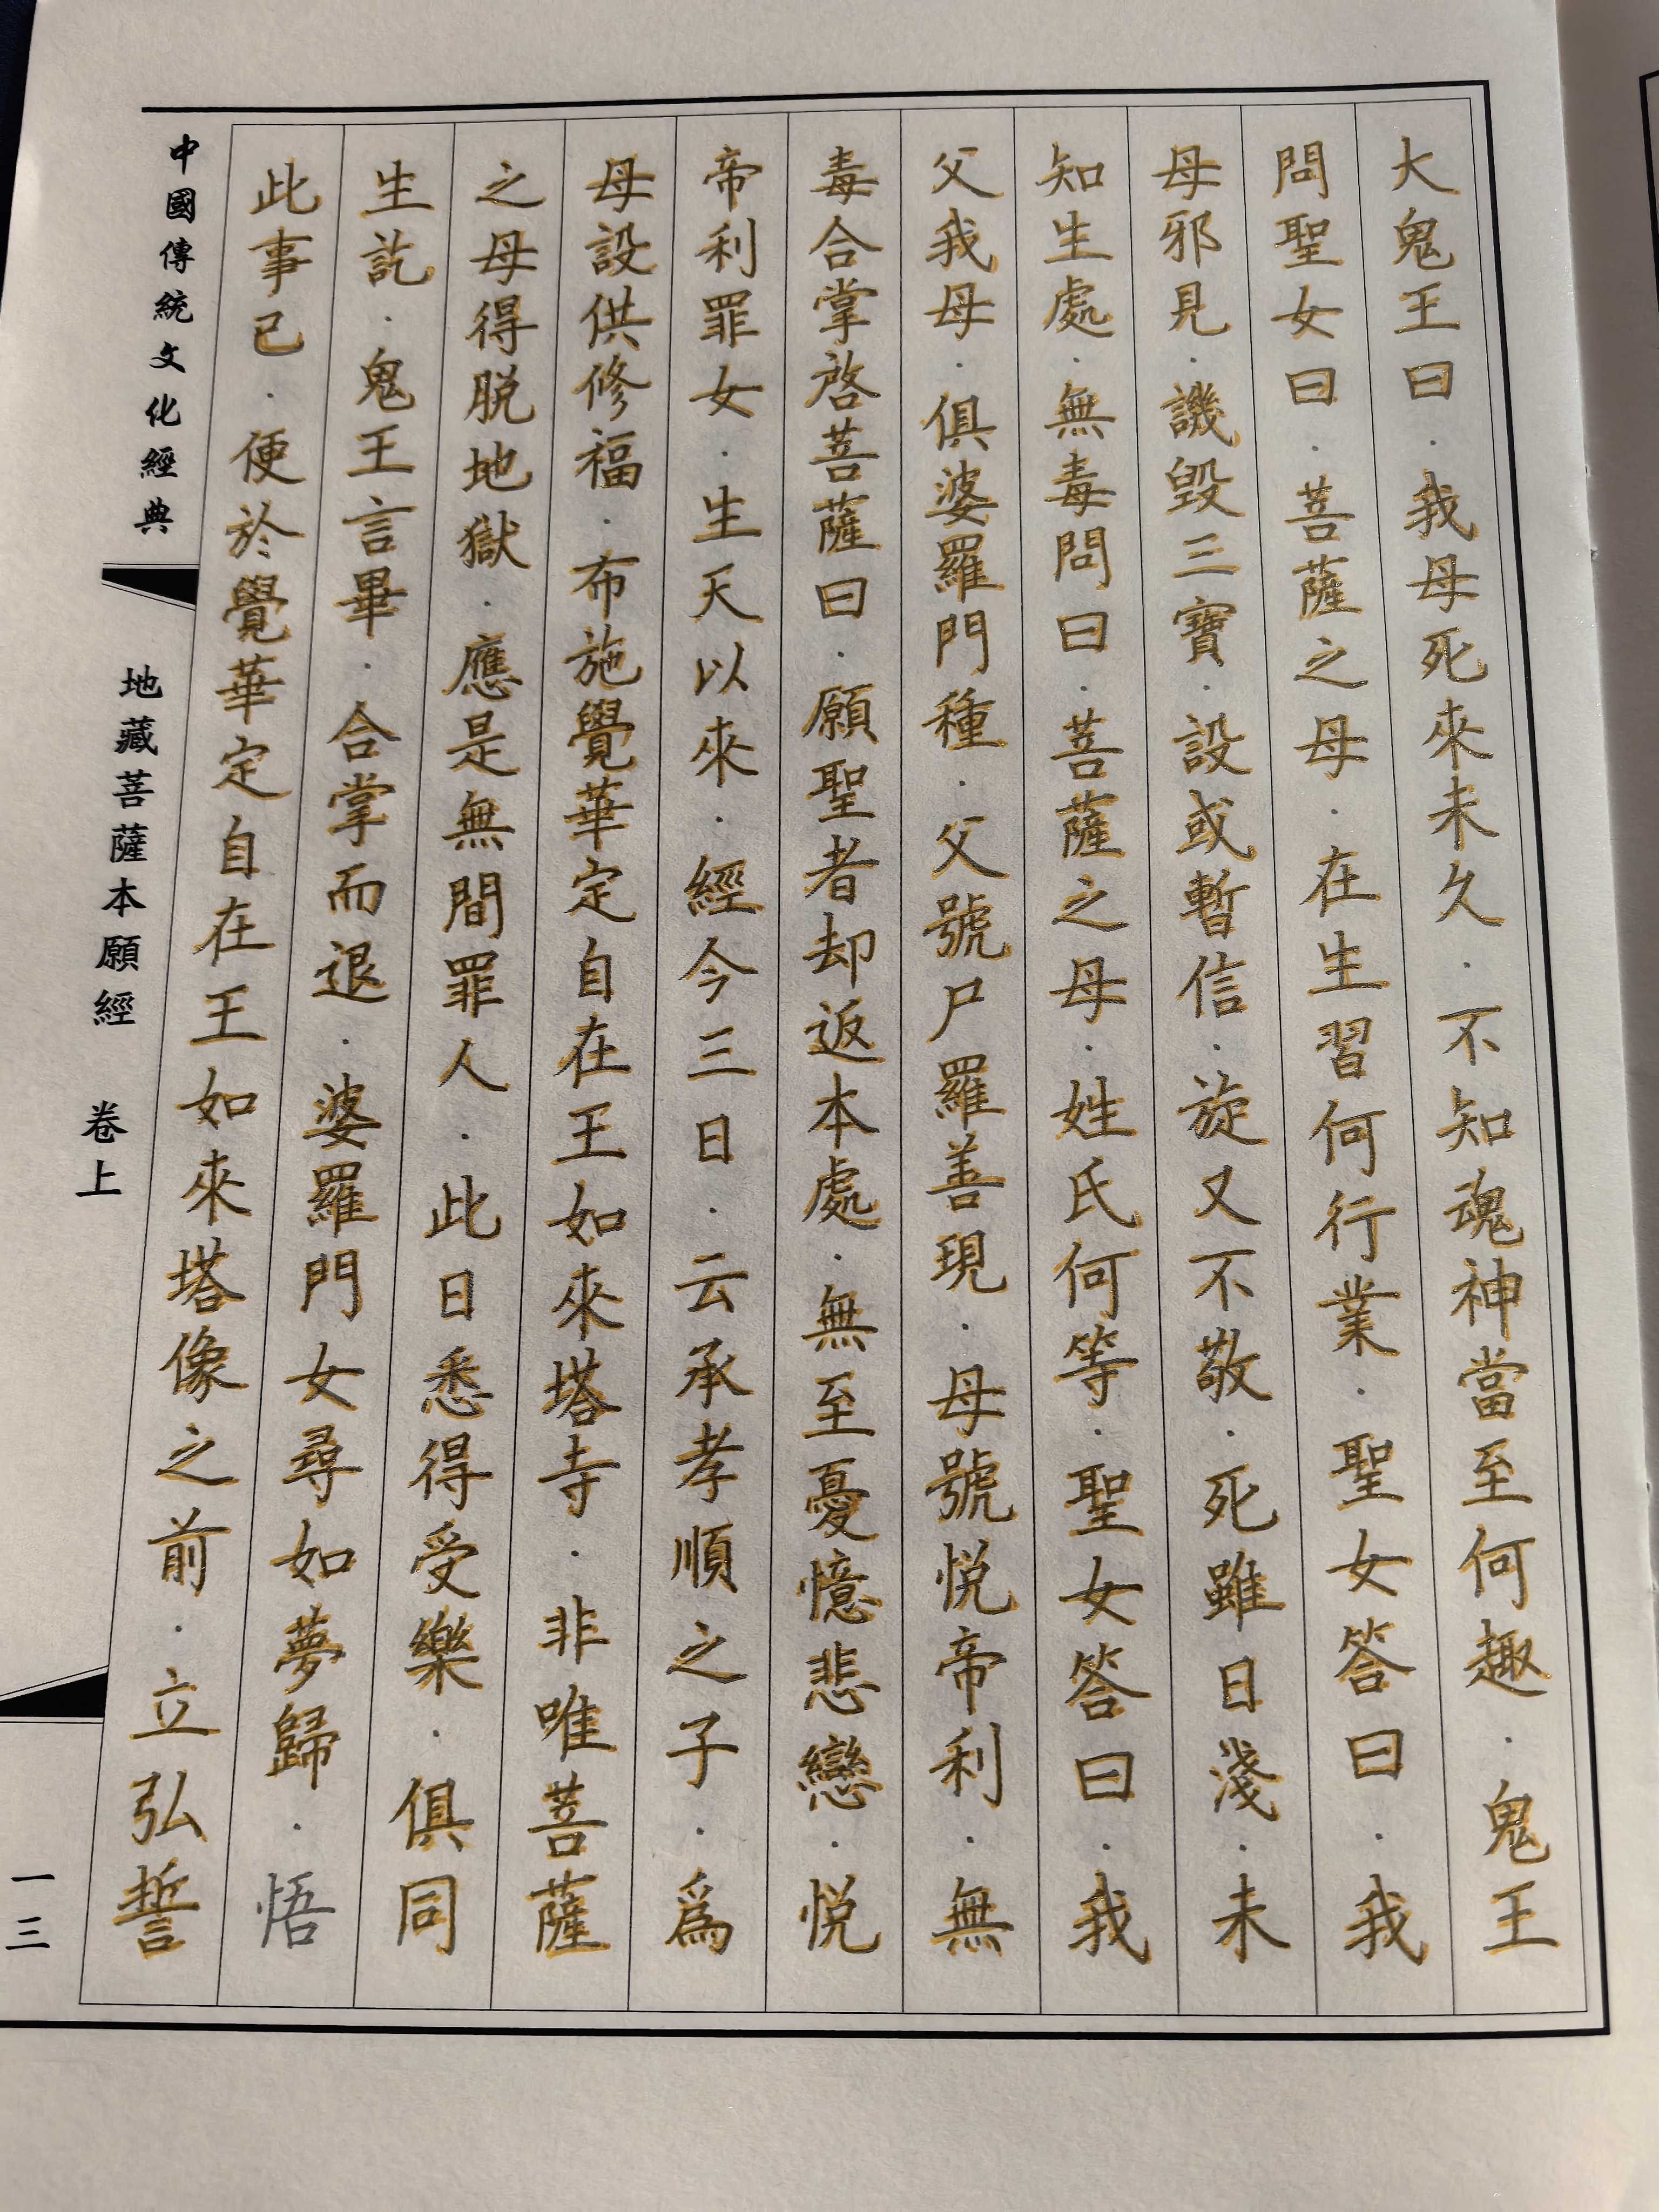 大鬼王曰．我母死來未久．不知魂神當至何趣．鬼王
問聖女曰．菩薩之母．在生習何行業．聖女答曰．我
母邪見．譏毀三寶．設或暫信．旋又不敬．死雖日淺．未
知生處．無毒問曰．菩薩之母．姓氏何等．聖女答曰．我
父我母．俱婆羅門種．父號尸羅善現．母號悅帝利．無
毒合掌啓菩薩曰．願聖者却返本處．無至憂憶悲戀．悅
帝利罪女．生天以來．經今三日．云承孝順之子．爲
母設供修福．布施覺華定自在王如來塔寺．非唯菩薩
之母得脱地獄．應是無間罪人．此日悉得受樂．俱同
生訖．鬼王言畢．合掌而退．婆羅門女尋如夢歸．悟
此事已．便於覺華定自在王如來塔像之前．立弘誓
中國傳統文化經典
地藏菩薩本願經 卷上
一三